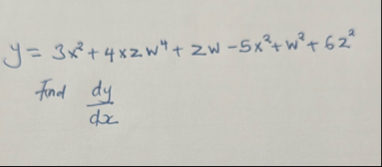 y = 3x² + 4xzw⁴ + zw - 5x² + w² + 6z²
Find dy/dx